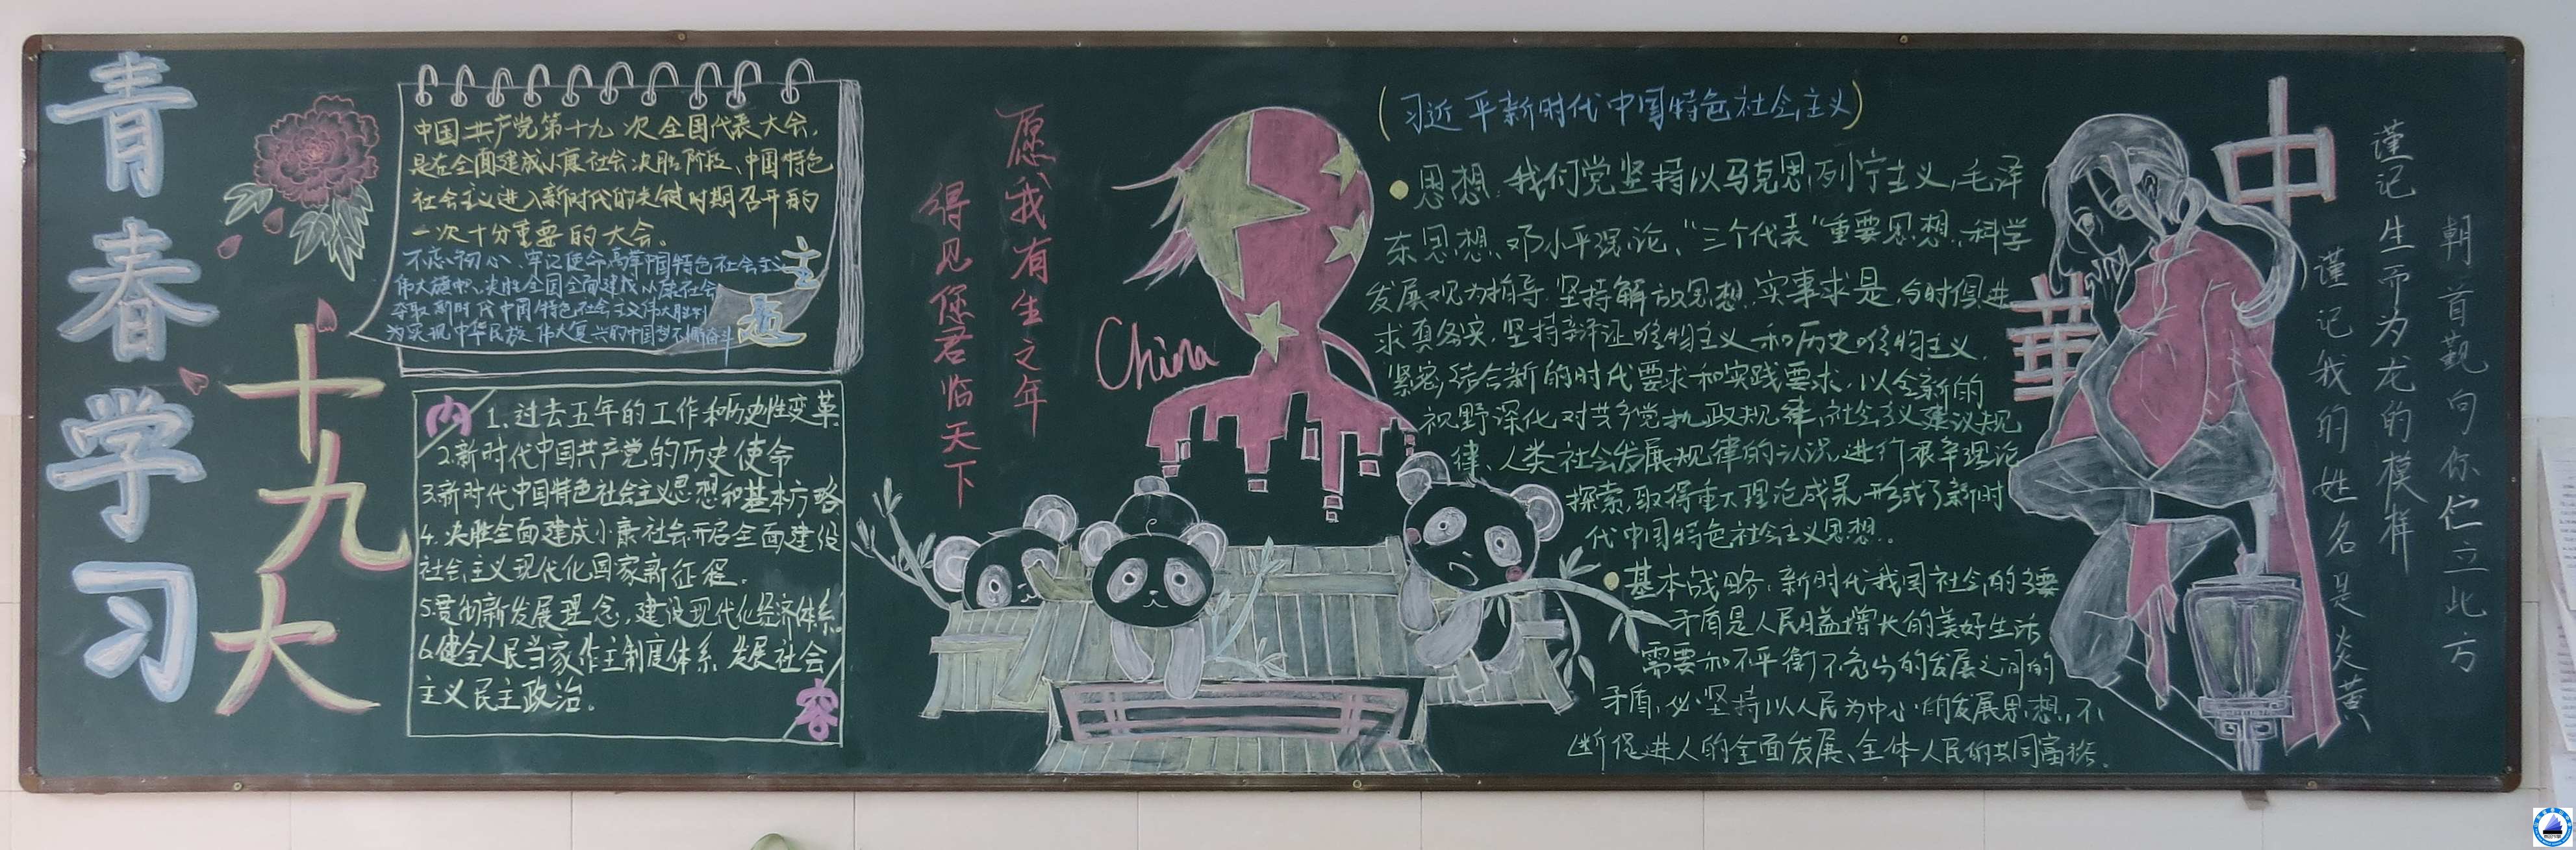 青春学习
十九大
中国共产党第十九次全国代表大会,
是在全面建成小康社会决胜阶段、中国特色
社会主义进入新时代的关键时期召开的
一次十分重要的大会。
主题
不忘初心、牢记使命,高举中国特色社会主义
伟大旗帜、决胜全国全面建成小康社会
夺取新时代中国特色社会主义伟大胜利
为实现中华民族伟大复兴的中国梦不懈奋斗
内容
1.过去五年的工作和历史性变革
2.新时代中国共产党的历史使命
3.新时代中国特色社会主义思想和基本方略
4.决胜全面建成小康社会.开启全面建设
社会主义现代化国家新征程.
5.贯彻新发展理念,建设现代化经济体系.
6.健全人民当家作主制度体系,发展社会
主义民主政治。
愿我有生之年
得见您君临天下
China
(习近平新时代中国特色社会主义)
思想:我们党坚持以马克思列宁主义,毛泽
东思想、邓小平理论、“三个代表”重要思想、科学
发展观为指导.坚持解放思想.实事求是,与时俱进
求真务实.坚持辩证唯物主义和历史唯物主义.
紧密结合新的时代要求和实践要求,以全新的
视野深化对共产党执政规律,社会主义建议规
律、人类社会发展规律的认识,进行艰辛理论
探索,取得重大理论成果,形成了新时
代中国特色社会主义思想。
基本战略:新时代我国社会的主要
矛盾是人民日益增长的美好生活
需要和不平衡不充分的发展之间的
矛盾,必坚持以人民为中心的发展思想,不
断促进人的全面发展、全体人民的共同富裕.
中華
朝首觐向你伫立此方
谨记生而为龙的模样
谨记我的姓名是炎黄